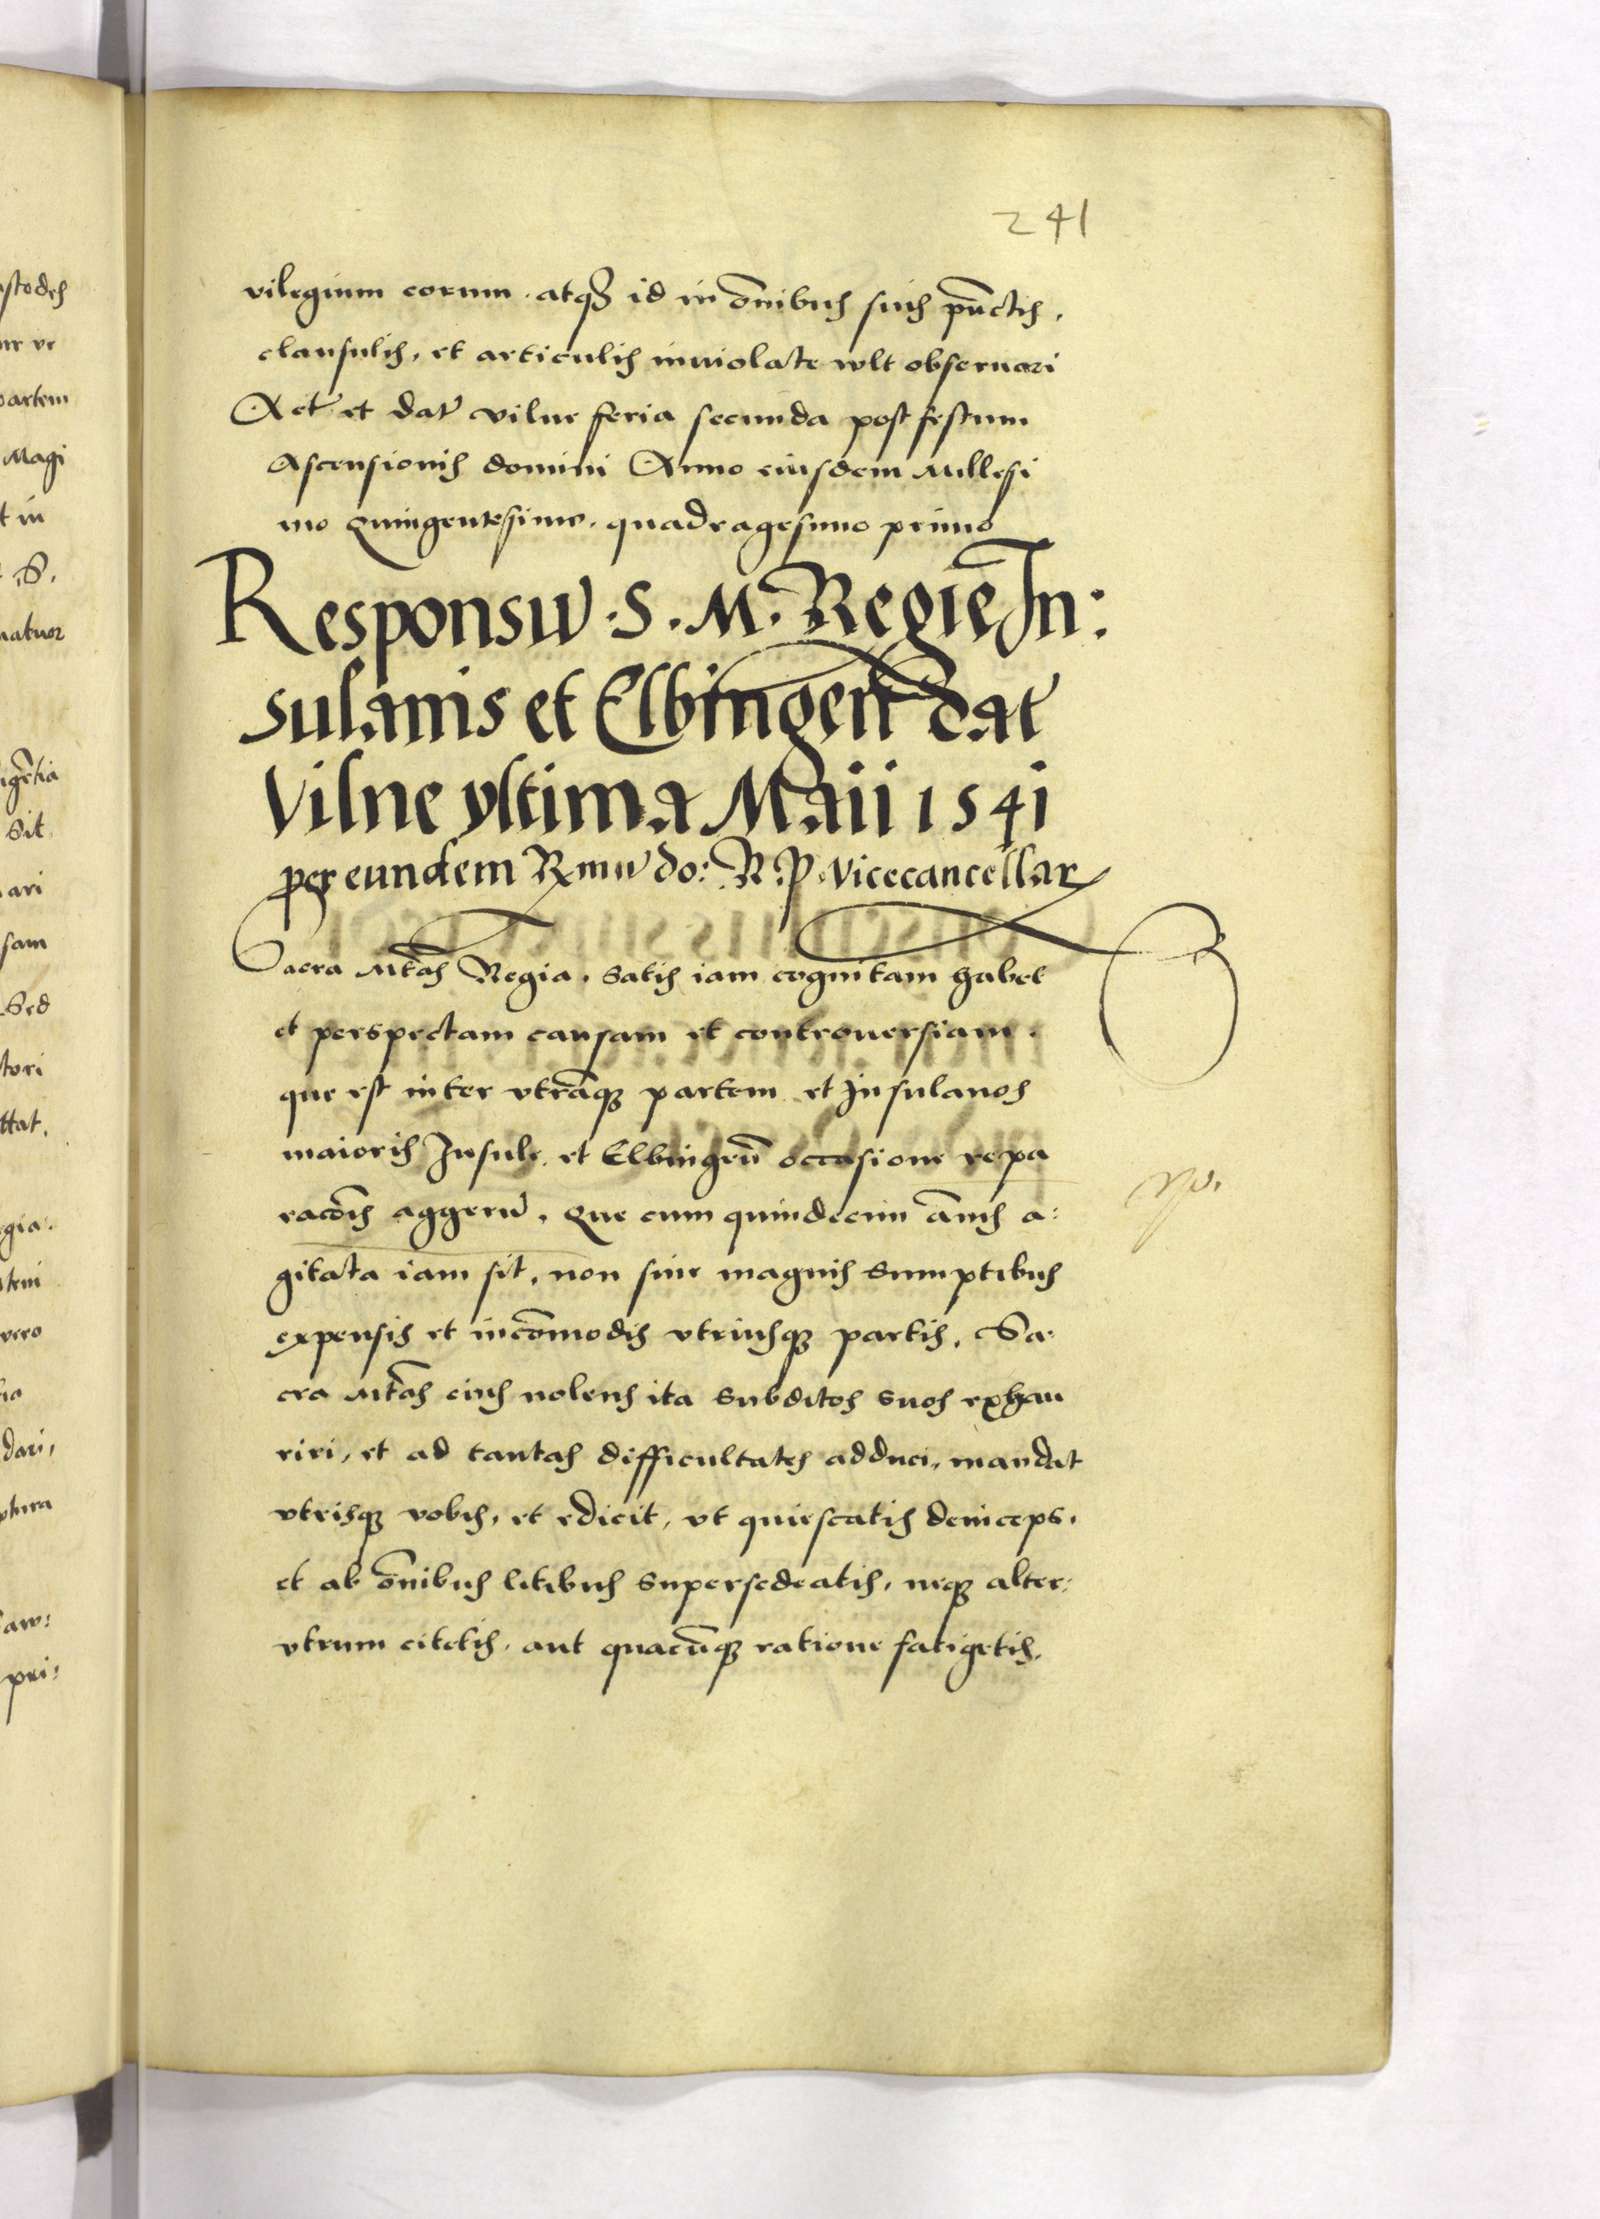 241
vilegium eorum. atqꝫ id in ōnibus suis pūctis,
clausulis, et articulis inuiolate wlt obseruari
Act̄ et dat̄ vilne feria secunda post festum
Ascensionis domini Anno eiusdem Millesi
mo Quingentesimo. quadragesimo primo
Responsū S. M. Regie In:
sulanis et Elbingen̄ dat̄
Vilne vltima Maii 1541
per eundem Rmū do: R. P. Vicecancellar
Sacra Mtas Regia, satis iam cognitam habet
et perspectam causam et controuersiam.
que est inter vtrāqꝫ partem et Insulanos
maioris Insule, et Elbingeñ occasione repa
racōis aggerū, Que cum quindecim ānis a:
gitata iam sit, non sine magnis sumptibus
expensis et incōmodis vtriusqꝫ partis, Sa
cra Mtas eius nolens ita subditos suos exhau
riri, et ad tantas difficultates adduci, mandat
vtrisqꝫ vobis, et edicit, vt quiescatis deinceps,
et ab ōnibus litibus supersedeatis, neqꝫ alter:
vtrum citetis, aut quacūqꝫ ratione fatigetis,
stodes
ur ve
partem
Magi
t in
S.
natuor
igētia
sit
ari
sam
Sed
tori
ttat,
egia.
vero
dari,
ptura
pri: